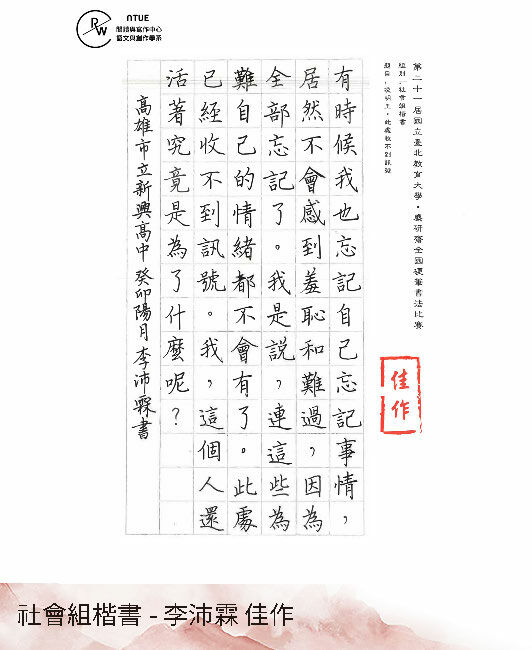 NTUE
RW
閱讀與寫作中心
語文與創作學系
第二十一屆國立臺北教育大學・農研齋全國硬筆書法比賽
組別：社會組楷書
有時候我也忘記自己忘記事情，
居然不會感到羞恥和難過，因為
全部忘記了。我是說，連這些為
難自己的情緒都不會有了。此處
已經收不到訊號。我，這個人還
活著究竟是為了什麼呢？
高雄市立新興高中 癸卯陽月 李沛霖書
佳作
社會組楷書 - 李沛霖 佳作